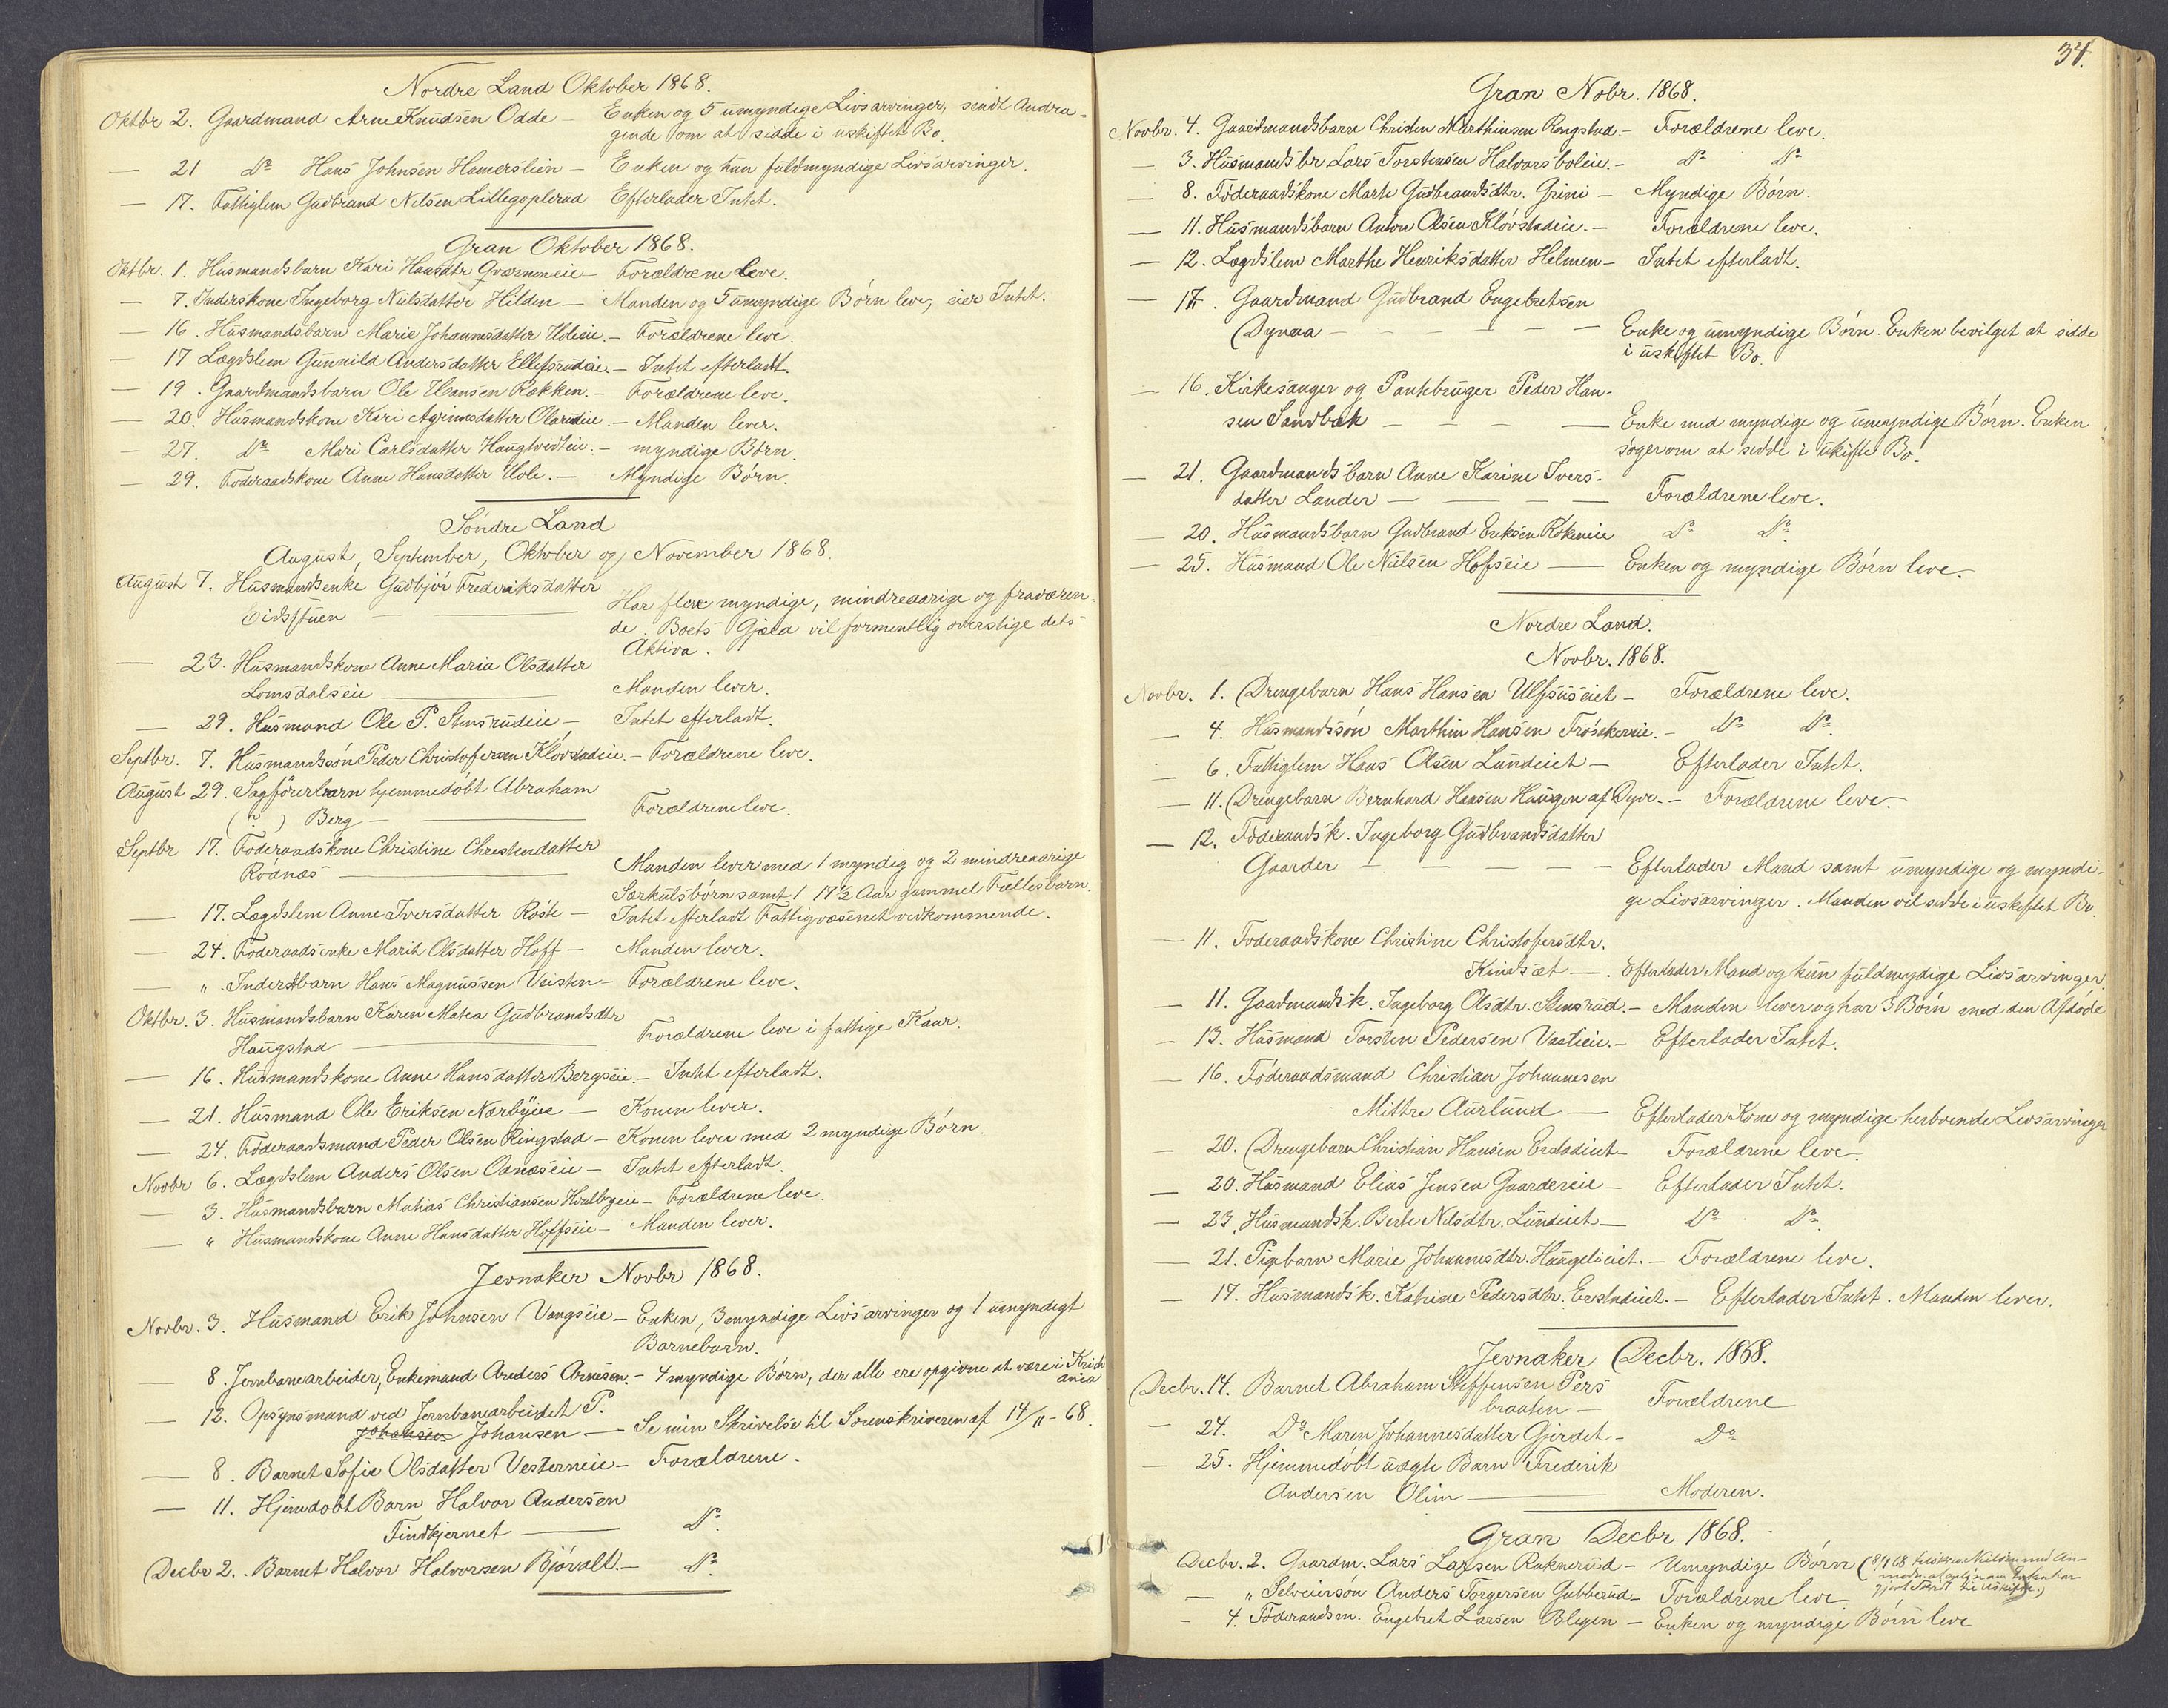 Nordre Land Oktober 1868.
Oktbr 2. Gaardmand Arne Knudsen Odde — Enken og 5 umyndige Livsarvinger, sendt Andra-
gende om at sidde i uskiftet Bo.
— 21 Do Hans Johnsen Hamerslien — Enken og kun fuldmyndige Livsarvinger.
— 17. Fattiglem Gudbrand Nilsen Lillegoplerud Efterlader Intet.
Gran Oktober 1868.
Oktbr. 1. Husmandsbarn Kari Hansdtr Gværneneie — Forældrene leve.
— 7. Inderstkone Ingeborg Nielsdatter Hilden — Manden og 5 umyndige Børn leve, eier Intet.
— 16. Husmandsbarn Marie Johannesdatter — Forældrene leve.
— 17 Lægdslem Gunnild Andersdatter Ellefsrudeie. — Intet efterladt.
— 19. Gaardmandsbarn Ole Hansen Rækken. — Forældrene leve.
— 20. Husmandskone Kari Agrimsdatter Olerudeie. — Manden lever.
— 27. Do Mari Carlsdatter Haugtvedteie. — myndige Børn.
— 29. Føderaadskone Anne Hansdatter Hole. — Myndige Børn.
Søndre Land
August, September, Oktober og November 1868.
August 7. Husmandsenke Gudbjør Frederiksdatter
Eidsstuen — Har flere myndige, mindreaarige og fraværen-
de. Boets Gjæld vil formentlig overstige dets
Aktiva.
— 23. Husmandskone Anne Maria Olsdatter
Lomsdalseie — Manden lever.
— 29. Husmand Ole P. Stensrudeie — Intet efterladt.
Septbr. 7. Husmandssøn Peder Christofersen Kløvstadeie. — Forældrene leve.
August 29. Sagførerbarn hjemmedøbt Abraham
(?) Berg — Forældrene leve.
Septbr 17. Føderaadskone Christine Christendatter
Rødnæs — Manden lever med 1 myndig og 2 mindreaarige
Særkulsbørn samt 1 17½ Aar gammel Fællesbarn.
— 17. Lægdslem Anne Iversdatter Røste — Intet efterladt Fattigvæsenet vedkommende.
— 24. Føderaadsenke Marit Olsdatter Hoff — Manden lever.
— " Inderstbarn Hans Magnussen Veisten — Forældrene leve.
Oktbr. 3. Husmandsbarn Karen Matea Gudbrandsdtr
Haugstad — Forældrene leve i fattige Kaar.
— 16. Husmandskone Anne Hansdatter Bergseie. — Intet efterladt.
— 21. Husmand Ole Eriksen Nærbyeie — Konen lever.
— 24. Føderaadsmand Peder Olsen Ringstad — Konen lever med 2 myndige Børn.
Novbr 6. Lægdslem Anders Olsen Oænæseie — Intet efterladt.
— 3. Husmandsbarn Mathias Christiansen Hvalbyeie — Forældrene leve.
— " Husmandskone Anne Hansdatter Hoffseie — Manden lever.
Jevnaker Novbr 1868.
Novbr. 3. Husmand Erik Johnsen Vangseie — Enken, 3 myndige Livsarvinger og 1 umyndigt
Barnebarn.
— 8. Jernbanearbeider, Enkemand Anders Arnesen. — 4 myndige Børn, der alle ere opgivne at være i Kristi
ania
— 12. Opsynsmand ved Jernbanearbeidet P.
Johansen Johansen — Se min Skrivelse til Sorenskriveren af 14/11 - 68.
— 8. Barnet Sofie Olsdatter Vesterneie — Forældrene.
— 11. Hjemdøbt Barn Halvor Andersen
Findtjernet — Do
Decbr 2. Barnet Halvor Halvorsen Bjøralt. — Do
34.
Gran Nobr. 1868.
Novbr. 4. Gaardmandsbarn Christen Marthinsen Rongstad. — Forældrene leve.
— 3. Husmandsbr Lars Torstensen Halvorsboleie. — Do Do
— 8. Föderaadskone Marte Gudbrandsdtr. Grini — Myndige Børn.
— 11. Husmandsbarn Anton Olsen Kløvstadeie. — Forældrene leve.
— 12. Lægdslem Marthe Henriksdatter Helmen — Intet efterladt.
— 17. Gaardmand Gudbrand Engebretsen
Dynna — Enke og umyndige Børn. Enken bevilget at sidde
i uskiftet Bo.
— 16. Kirkesanger og Pantebruger Peder Han-
sen Sandbæk — Enke med myndige og umyndige Børn. Enken
søger om at sidde i uskiftet Bo.
— 21. Gaardmandsbarn Anne Karine Ivers-
datter Lander — Forældrene leve.
— 20. Husmandsbarn Gudbrand Eriksen Røkeneie Do Do
— 25. Husmand Ole Nielsen Hofseie — Enken og myndige Børn leve.
Nordre Land.
Novbr. 1868.
Novbr. 1. Drengebarn Hans Hansen Ulfsuseiet — Forældrene leve.
— 4. Husmandssøn Marthin Hansen Frøsakereie. — Do Do
— 6. Fattiglem Hans Olsen Lundeiet — Efterlader Intet.
— 11. Drengebarn Bernhard Hansen Haugen af Dyve. — Forældrene leve.
— 12. Føderaadsk. Ingeborg Gudbrandsdatter
Gaarder — Efterlader Mand samt umyndige og myndi-
ge Livsarvinger. Manden vil sidde i uskiftet Bo.
— 11. Føderaadskone Christine Christofersdtr.
Kindsæt — Efterlader Mand og kun fuldmydige Livsarvinger.
— 11. Gaardmandsk. Ingeborg Olsdtr. Stensrud. — Manden lever og har 3 Børn med den Afdøde
— 13. Husmand Torsten Pedersen Vasteie. — Efterlader Intet.
— 16. Føderaadsmand Christian Johannesen
Mittre Aurlund — Efterlader Kone og myndige herboende Livsarvinger
— 20. Drengebarn Christian Hansen Erstadeiet — Forældrene leve.
— 20. Husmand Elias Jensen Gaardereie — Efterlader Intet.
— 23. Husmandsk. Berte Nilsdtr. Lundeiet — Do Do
— 21. Pigbarn Marie Johannesdtr. Haugelieiet. — Forældrene leve.
— 17. Husmandsk. Katrine Pedersdtr. Erstadeiet. — Efterlader Intet. Manden lever.
Jevnaker Decbr. 1868.
Decbr. 14. Barnet Abraham Steffensen Pers
braaten — Forældrene
— 24. Do Maren Johannesdatter Gjerdet — Do
— 25. Hjemmedøbt uægte Barn Frederik
Andersen Olim — Moderen.
Gran Decbr 1868.
Decbr. 2. Gaardm. Lars Larsen Raknerud — Umyndige Børn (
— " Selveiersøn Anders Torgersen Gubberud — Forældrene leve
— 4. Föderaadsm. Engebret Larsen Blegen — Enken og myndige Børn leve